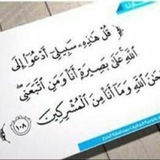 قُلْ هَٰذِهِۦ سَبِيلِىٓ أَدْعُوٓا۟ إِلَى
ٱللَّهِ عَلَىٰ بَصِيرَةٍ أَنَا۠ وَمَنِ ٱتَّبَعَنِى
حَٰنَ ٱللَّهِ وَمَآ أَنَا۠ مِنَ ٱلْمُشْرِكِينَ ١٠٨